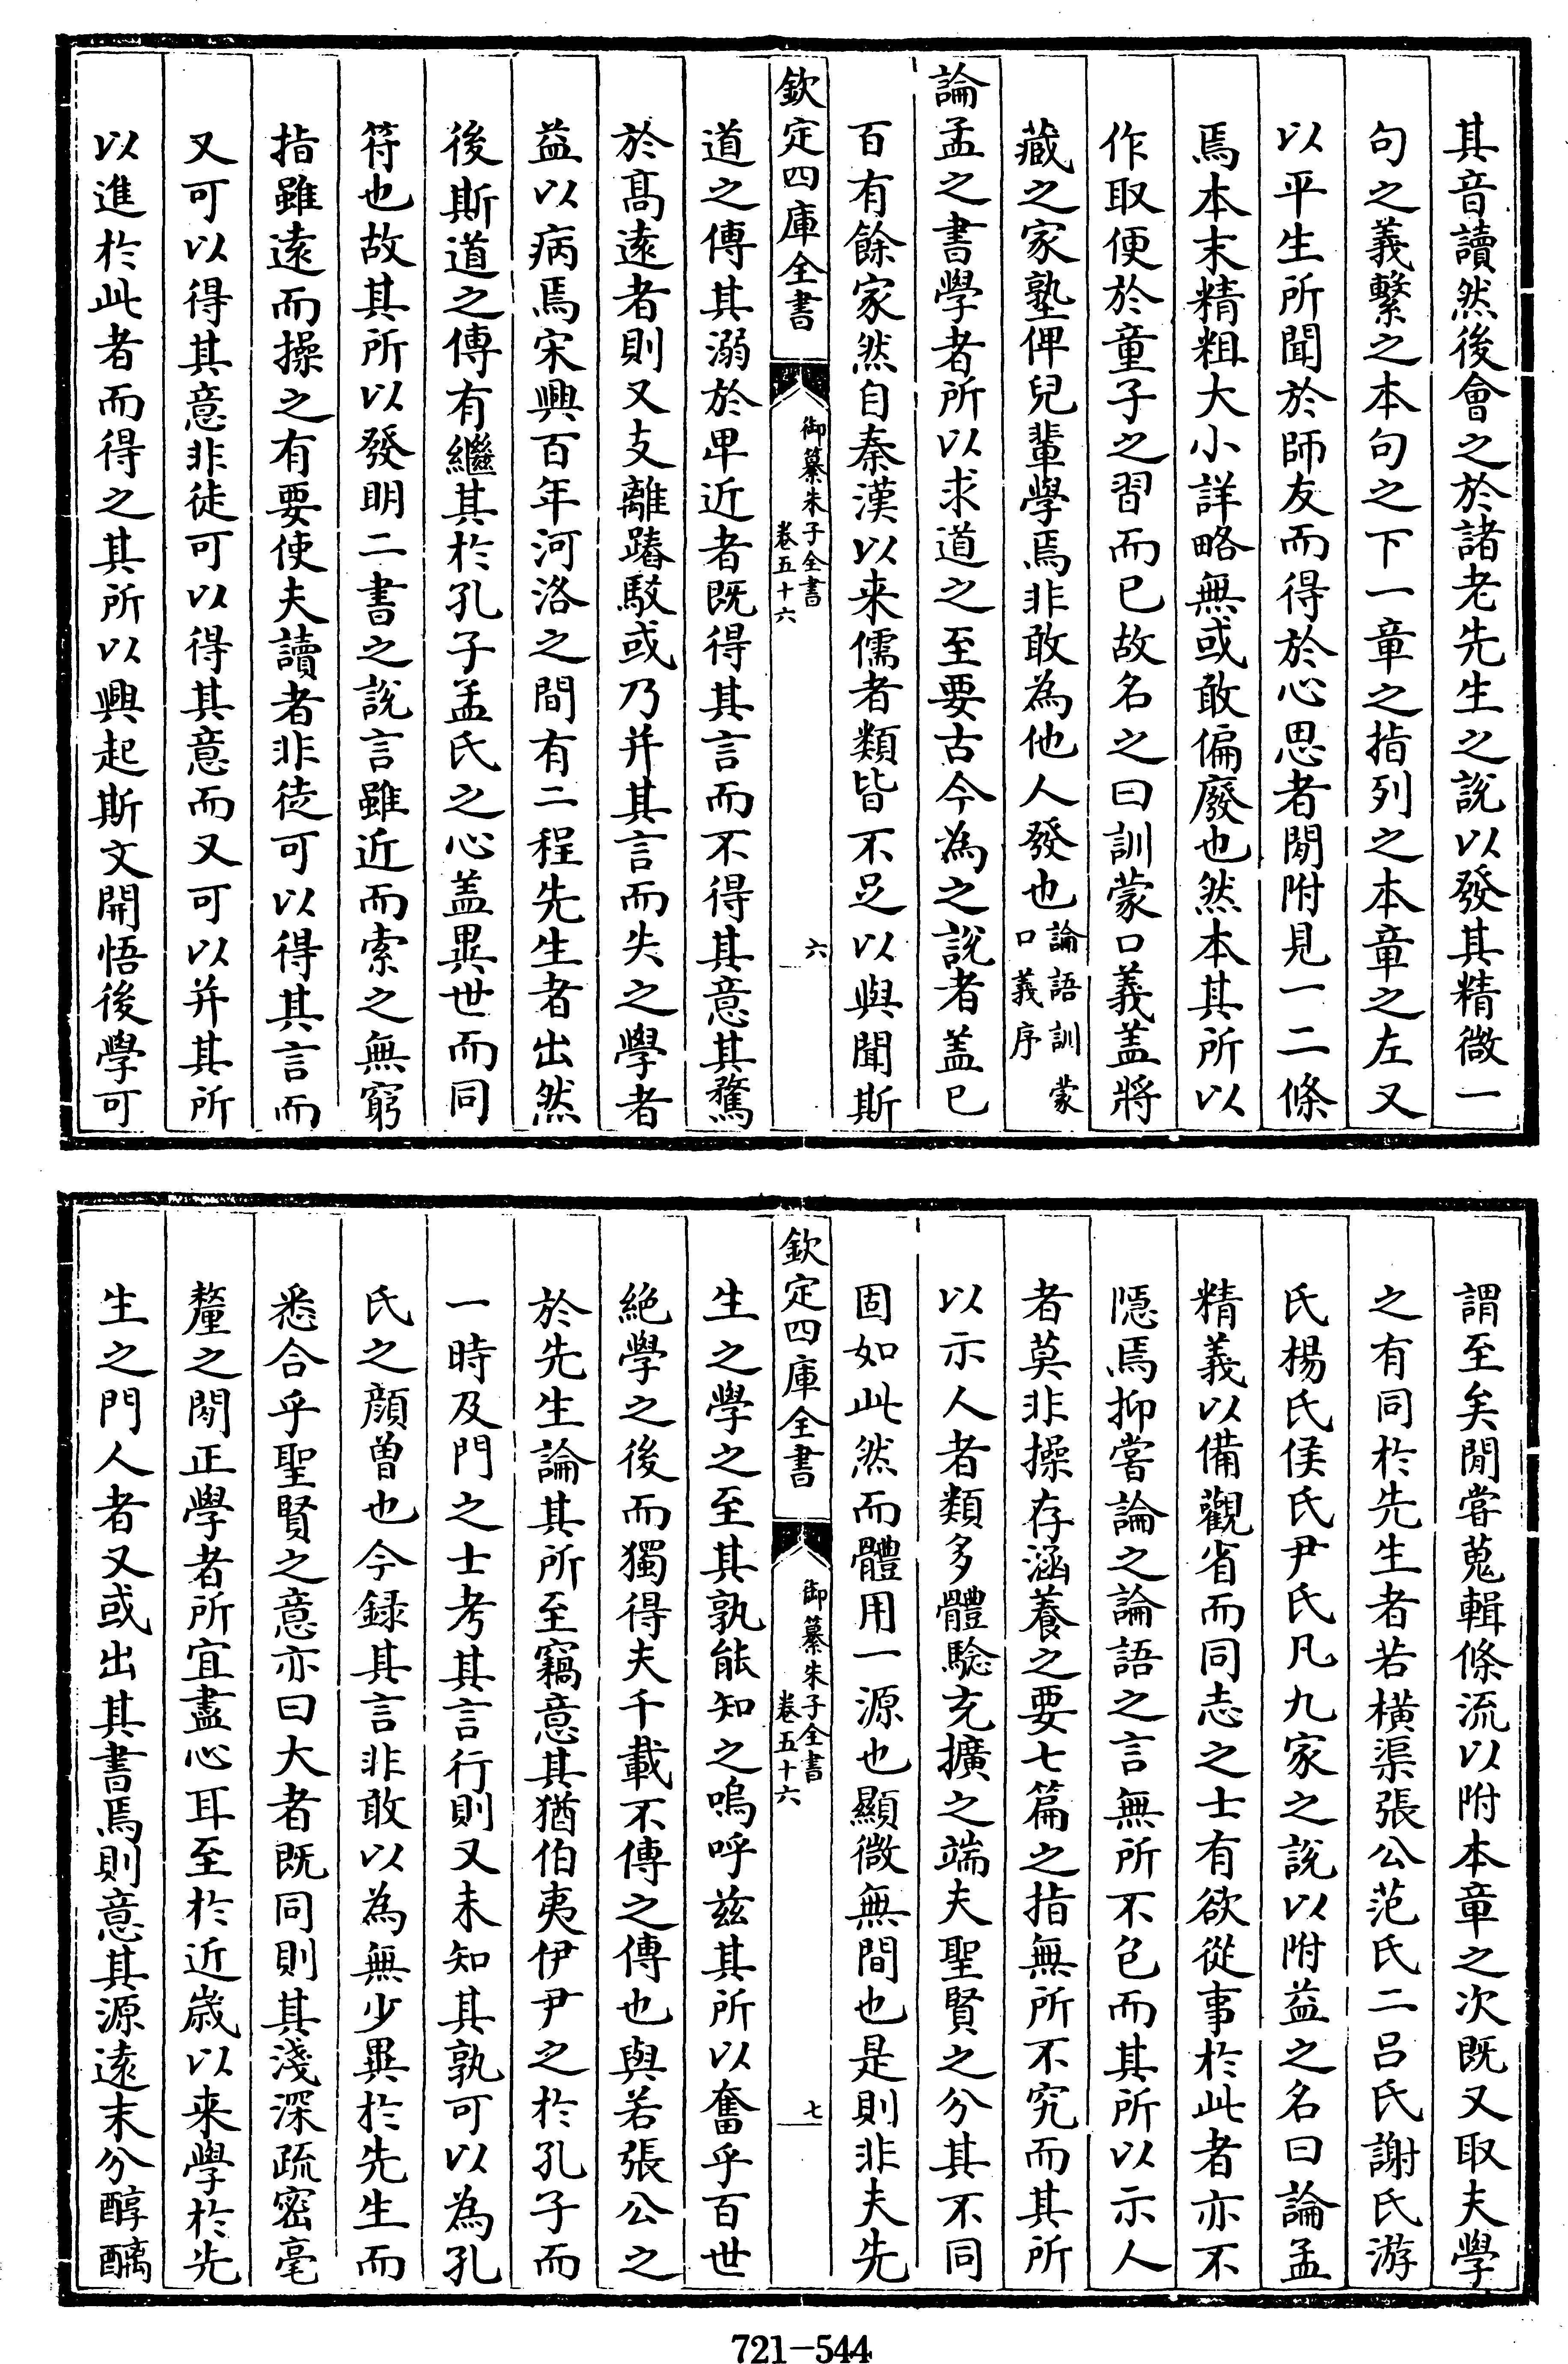 其音讀然後會之於諸老先生之說以發其精微一
句之義繫之本句之下一章之指列之本章之左又
以平生所聞於師友而得於心思者閒附見一二條
焉本末精粗大小詳略無或敢偏廢也然本其所以
作取便於童子之習而已故名之曰訓蒙口義盖將
藏之家塾俾兒輩學焉非敢為他人發也論語訓蒙口義序
論孟之書學者所以求道之至要古今為之說者盖已
百有餘家然自秦漢以来儒者類皆不足以與聞斯
欽定四庫全書
御纂朱子全書
卷五十六
六
道之傳其溺於卑近者既得其言而不得其意其騖
於髙遠者則又支離踳駁或乃并其言而失之學者
益以病焉宋興百年河洛之間有二程先生者出然
後斯道之傳有繼其於孔子孟氏之心盖異世而同
符也故其所以發明二書之說言雖近而索之無窮
指雖遠而操之有要使夫讀者非徒可以得其言而
又可以得其意非徒可以得其意而又可以并其所
以進於此者而得之其所以興起斯文開悟後學可
謂至矣閒嘗蒐輯條流以附本章之次既又取夫學
之有同於先生者若橫渠張公范氏二呂氏謝氏游
氏楊氏侯氏尹氏凡九家之說以附益之名曰論孟
精義以備觀省而同志之士有欲從事於此者亦不
隱焉抑嘗論之論語之言無所不包而其所以示人
者莫非操存涵養之要七篇之指無所不究而其所
以示人者類多體驗充擴之端夫聖賢之分其不同
固如此然而體用一源也顯微無間也是則非夫先
欽定四庫全書
御纂朱子全書
卷五十六
七
生之學之至其孰能知之嗚呼兹其所以奮乎百世
絶學之後而獨得夫千載不傳之傳也與若張公之
於先生論其所至竊意其猶伯夷伊尹之於孔子而
一時及門之士考其言行則又未知其孰可以為孔
氏之顔曾也今録其言非敢以為無少異於先生而
悉合乎聖賢之意亦曰大者既同則其淺深疏密毫
釐之閒正學者所宜盡心耳至於近歲以来學於先
生之門人者又或出其書焉則意其源遠末分醇醨
721-544